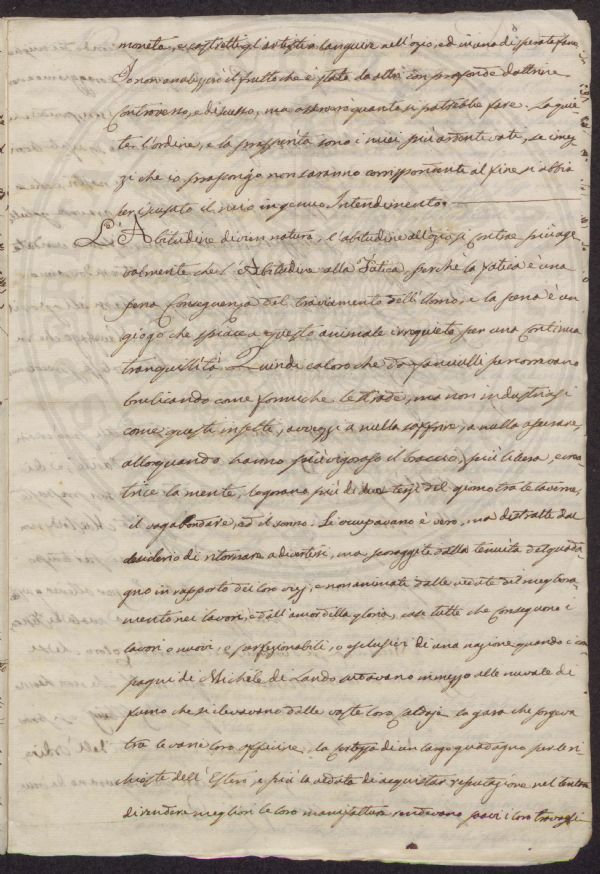 moneta, e costretti gl'artisti a languire nell'ozio, ed in una disperata fame.
Io non analizzerò il frutto che è stato da altri con profonde dottrine
controverso, e discusso, ma osserverò quanto si potrebbe fare. La quie
te, l'ordine, e la prosperità sono i miei più ardenti voti, se i mez
zi che io propongo non saranno corrispondenti al fine si abbia
per scusato il mio ingenuo Intendimento.
L'Abitudine divien natura, l'abitudine all'ozio si contrae più age
volmente che l'Abitudine alla Fatica, perchè la fatica è una
pena conseguenza del traviamento dell'Uomo, e la pena è un
giogo che spiace a questo animale irrequieto per una continua
tranquillità. Quindi coloro che da fanciulli percorrevano
brulicando come formiche le strade, ma non industriosi
come questi insetti, avvezzi a nulla soffrire, a nulla operare,
alloquando hanno più vigoroso il braccio, più libera, e crea
trice la mente, logorano più di due terzi del giorno tra le taverne,
il vagabondare, ed il sonno. Si occupavano è vero, ma distratti dal
desiderio di ritornare a divertirsi, ma dalla tenuità del guada
gno in rapporto dei loro vizj, e non animati dalle vedute del migliora
mento nei lavori, e dall'amor della gloria, cose tutte che conseguono i
lavori o nuovi, e perfezionabili, o esclusivi di una nazione quando i com
pagni di Michele di Lando sudavano in mezzo alle nuvole di
fumo che si elevavano dalle vaste loro caldaje la gara che sorgeva
tra le varie loro officine la certezza di un largo guadagno per le ri
chieste dell'Estero, e più la veduta di acquistar reputazione nel
di rendere migliori le loro manifatture rendevano soavi i loro travagli